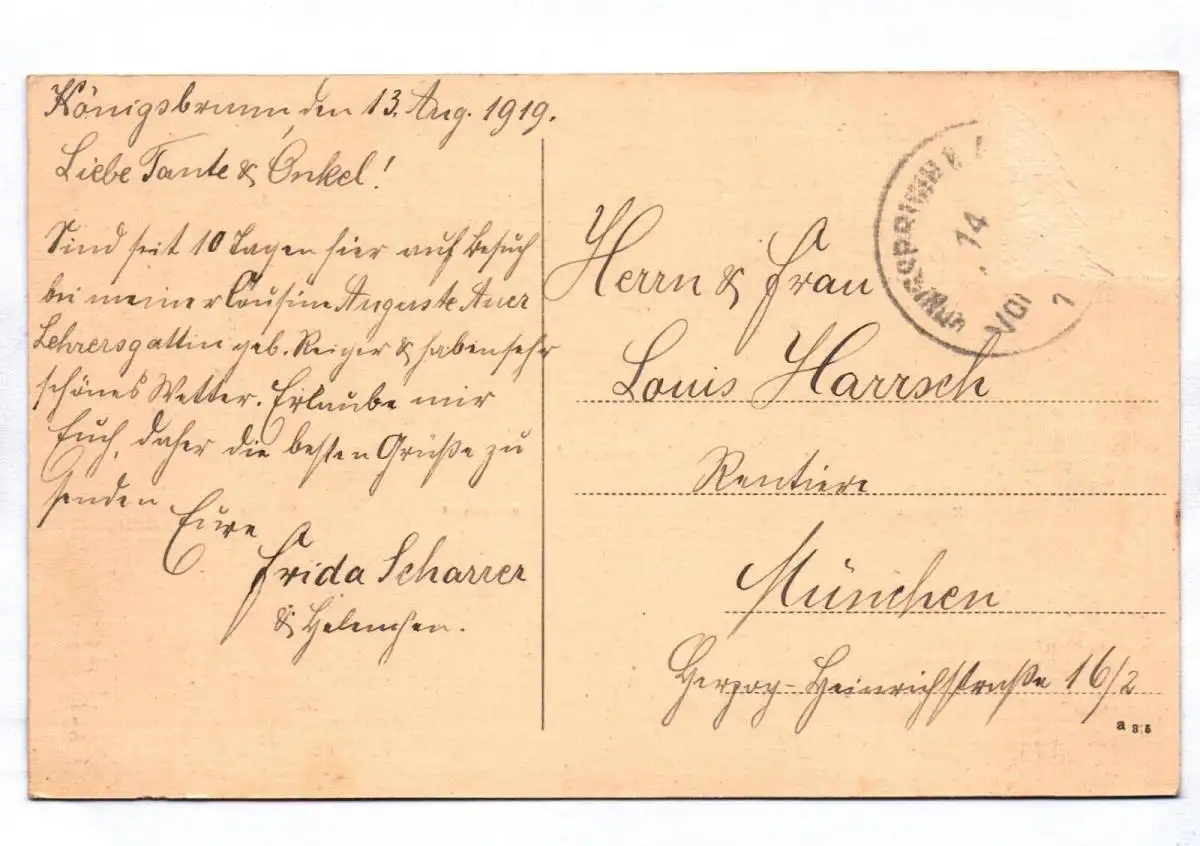 Königsbrunn, den 13. Aug. 1919.
Liebe Tante & Onkel!
Sind seit 10 Tagen hier auf Besuch
bei meiner Cousine Auguste Auer
Lehrersgattin geb. Reiger & haben sehr
schönes Wetter. Erlaube mir
Euch, daher die besten Grüße zu
senden
Eure
Frida Scharrer
& Helenchen.
14
VOR
1
Herrn & Frau
Louis Harrsch
Rentiere
München
Herzog-Heinrichstraße 16/2
a 35